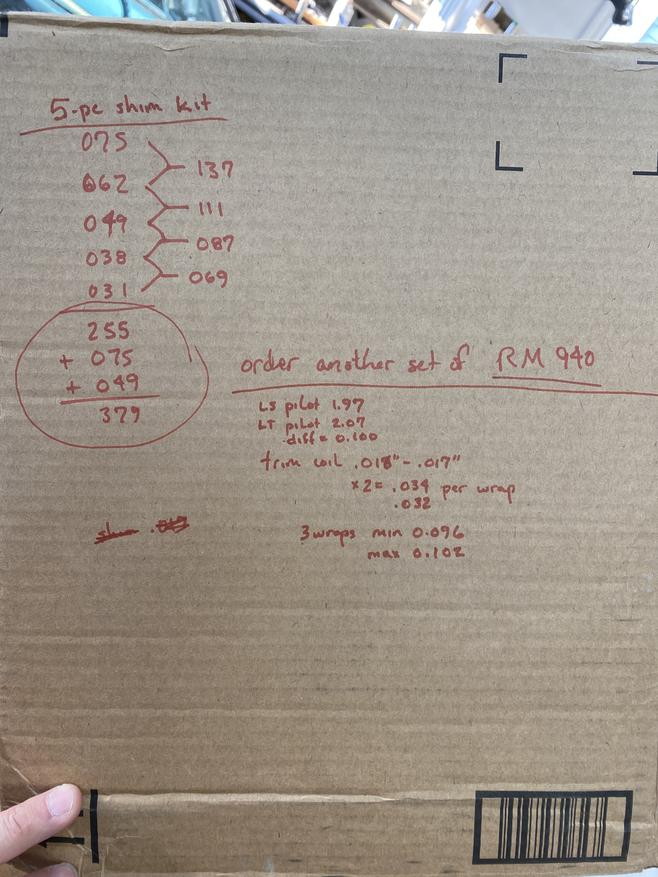 5-pc shim kit
075
137
062
111
049
087
038
069
031
255
+ 075
+ 049
379
order another set of RM 940
LS pilot 1.97
LT pilot 2.07
diff = 0.100
trim coil .018" - .017"
x2 = .034 per wrap
.032
3 wraps min 0.096
max 0.102